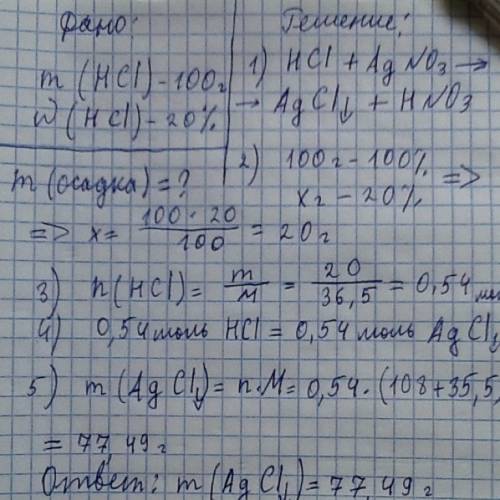 Дано:
m (HCl) - 100г
ω (HCl) - 20%
m (осадка) = ?
Решение:
1) HCl + AgNO3 →
→ AgCl↓ + HNO3
2) 100г - 100% =>
xг - 20%
=> x = 100 · 20 / 100 = 20г
3) n(HCl) = m/M = 20/36,5 = 0,54
4) 0,54 моль HCl = 0,54 моль AgCl↓
5) m (AgCl↓) = n·M = 0,54 · (108+35,5
= 77,49г
Ответ: m(AgCl↓) = 77 49г